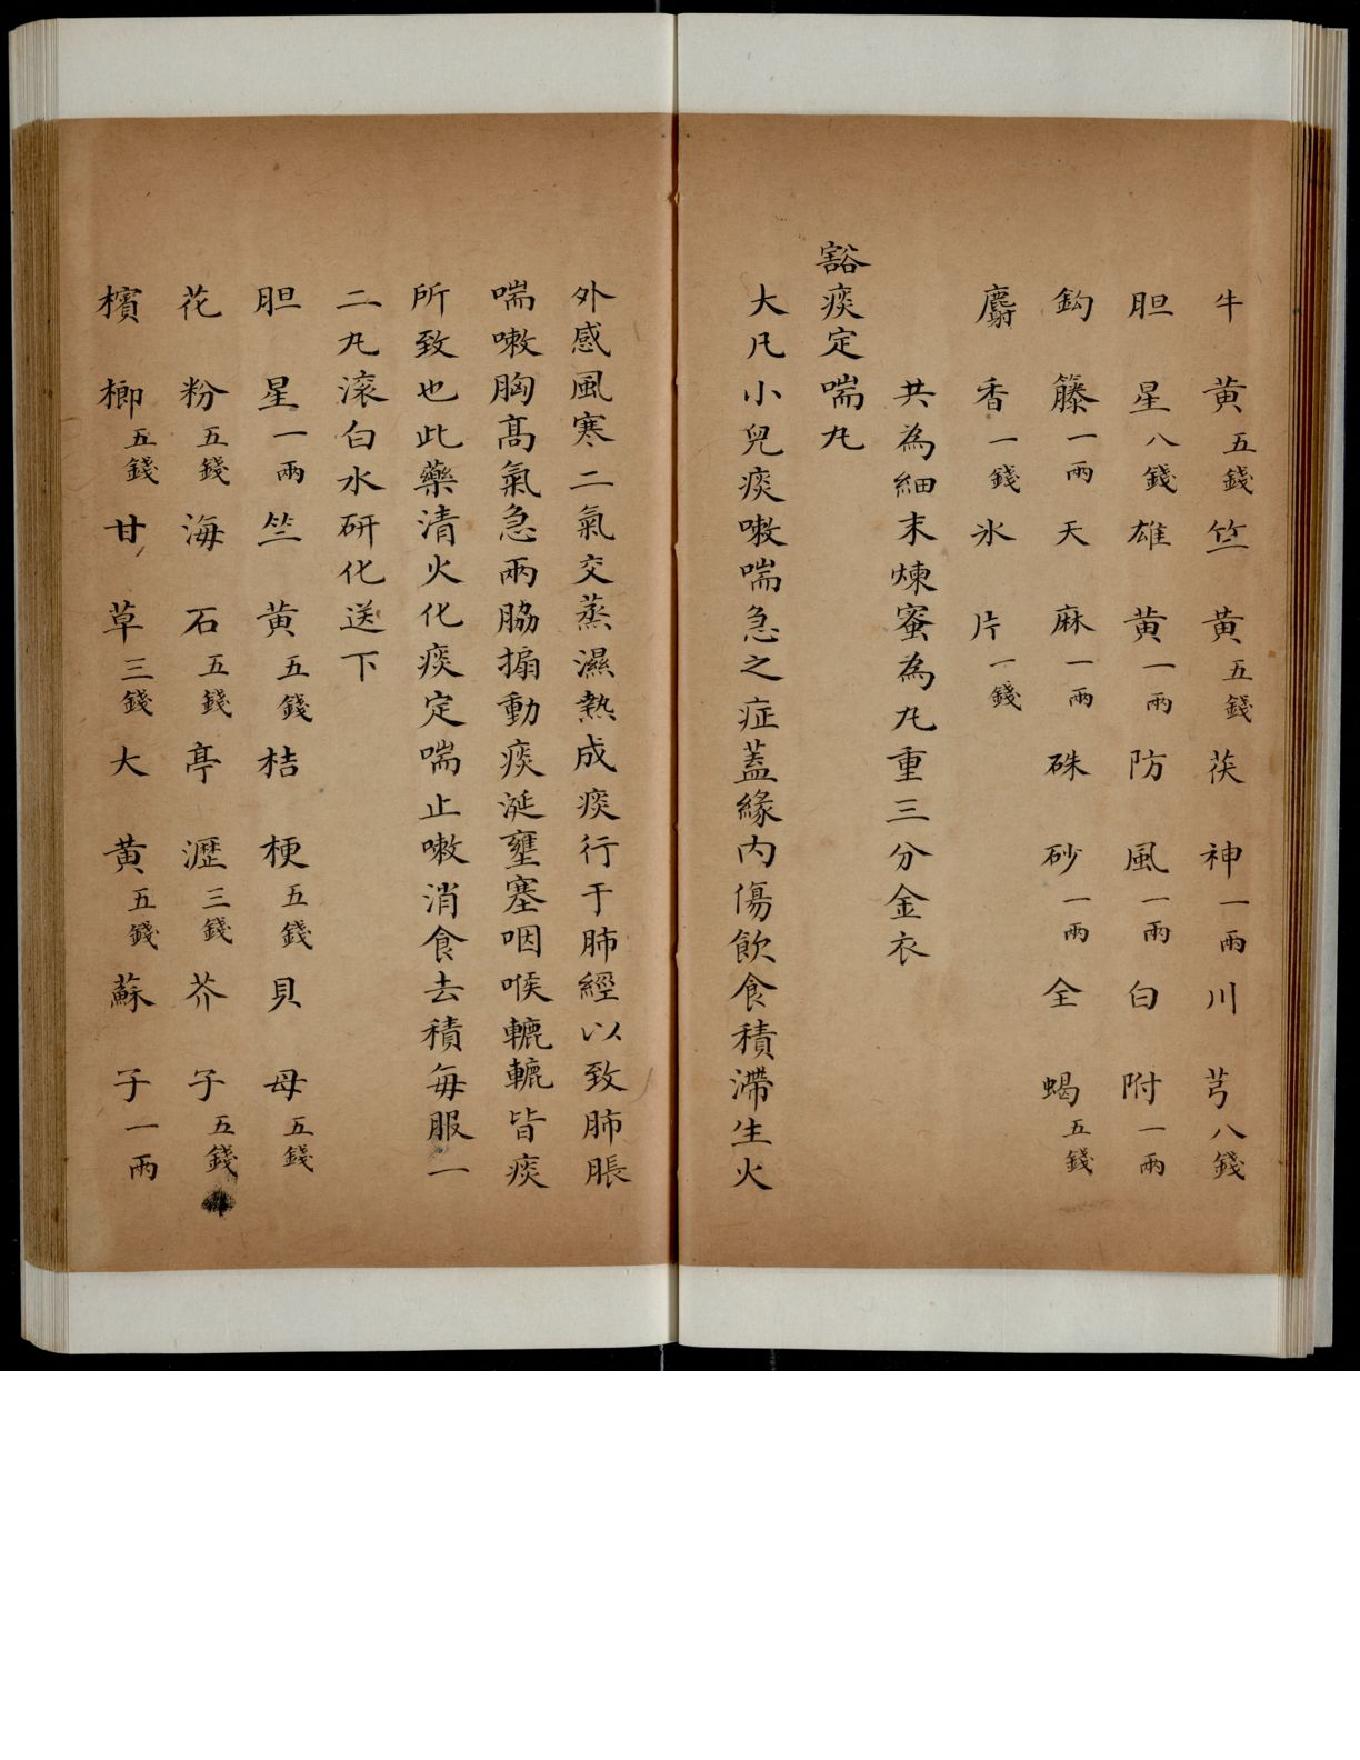 牛黄五錢竺黄五錢茯神一兩川芎八錢
胆星八錢雄黄一兩防風一兩白附一兩
鈎籐一兩天麻一兩硃砂一兩全蝎五錢
麝香一錢氷片一錢
共為細末煉蜜為丸重三分金衣
豁痰定喘丸
大凡小兒痰嗽喘急之症蓋緣內傷飲食積滯生火
外感風寒二氣交蒸濕熱成痰行于肺經以致肺脹
喘嗽胸髙氣急兩脇搧動痰涎壅塞咽喉轆轆皆痰
所致也此藥清火化痰定喘止嗽消食去積每服一
二丸滚白水研化送下
胆星一兩竺黄五錢桔梗五錢貝母五錢
花粉五錢海石五錢亭瀝三錢芥子五錢
檳榔五錢甘草三錢大黄五錢蘇子一兩